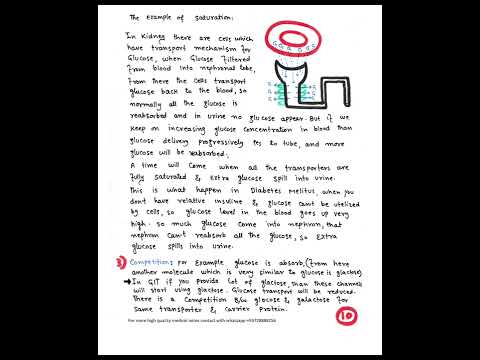 The Example of saturation:
In Kidney there are cells which
have transport mechanism for
Glucose, when Glucose filtered
from blood into nephronal tube,
from there the cells transport
glucose back to the blood, so
normally all the glucose is
reabsorbed and in urine no glucose appear. But if we
keep on increasing glucose concentration in blood than
glucose delivery progressively ↑es to tube, and more
glucose will be reabsorbed,
A time will come when all the transporters are
fully saturated & extra glucose spill into urine.
This is what happen in Diabetes Melitus, when you
dont have relative insuline & glucose cant be utelised
by cells, so glucose level in the blood goes up very
high. so much glucose come into nephron, that
nephron cant reabsorb all the glucose, so extra
glucose spills into urine.
3) Competition: For Example glucose is absorb, (from here
another molecule which is very similar to glucose is glactose)
→ In GIT if you provide lot of glactose, than these channels
will start using glactose. Glucose transport will be reduced.
There is a Competition b/w glucose & galactose for
Same transporter & carrier protein.
For more high quality medical notes contact with whatsapp
10